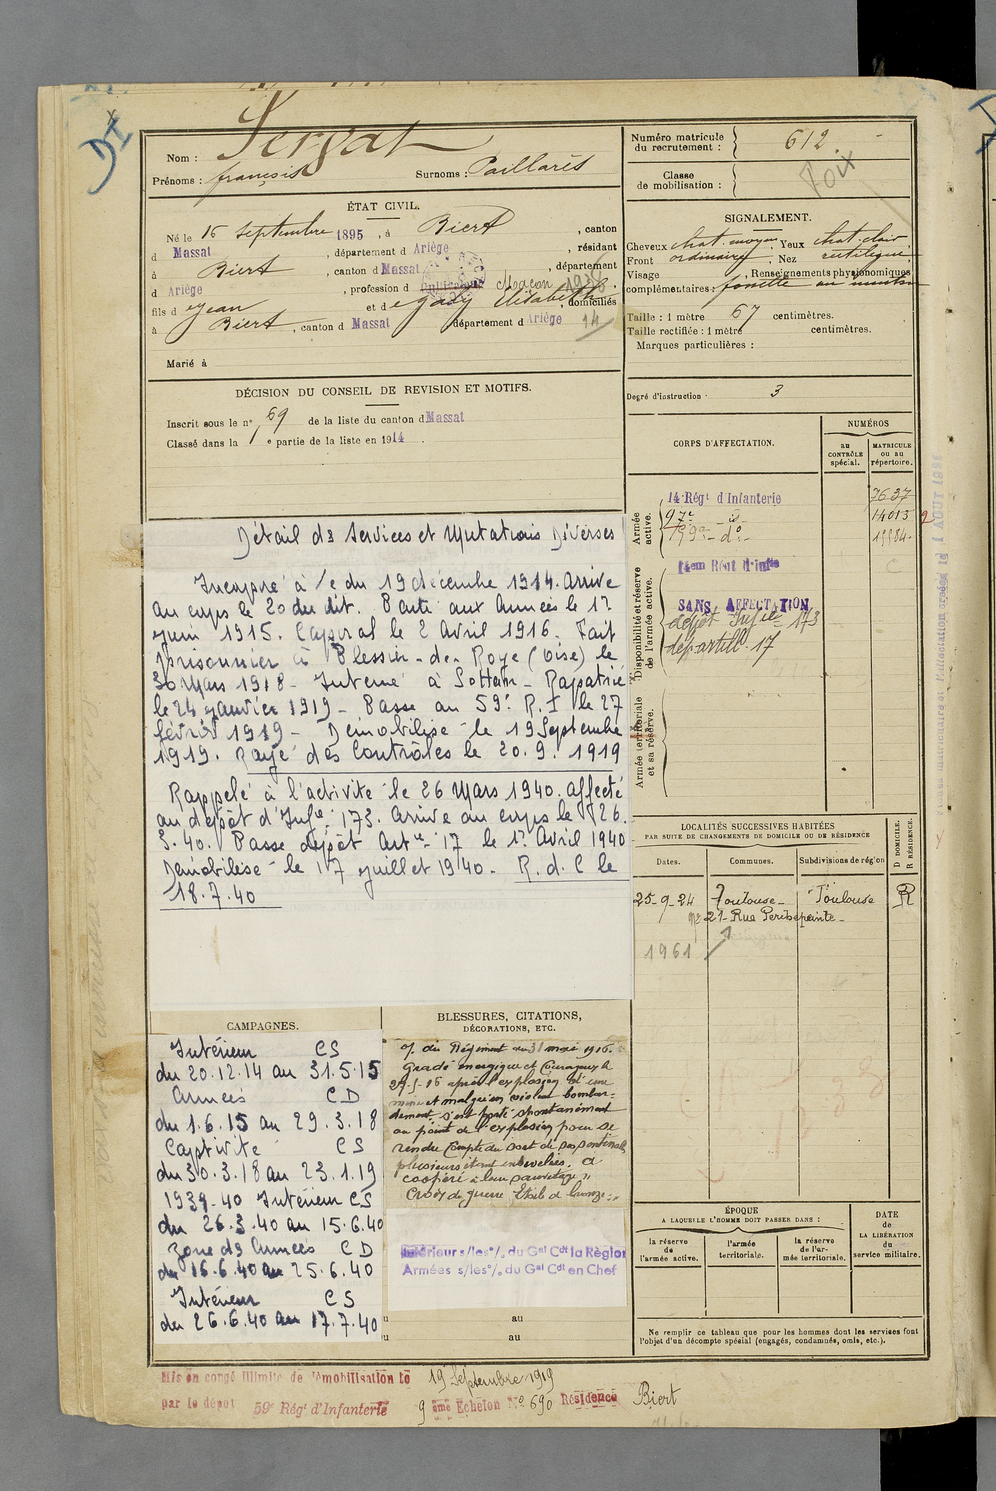 Nom : Sergat
Prénoms : françois Surnoms : Paillarès
Numéro matricule du recrutement : 612.
Classe de mobilisation :
Foix
ÉTAT CIVIL.
Né le 16 septembre 1895, à Biert, canton
d Massat, département d Ariège, résidant
à Biert, canton d Massat, département
d Ariège, profession d Maçon
fils d Jean et d Elisabeth, domiciliés
à Biert, canton d Massat département d Ariège
14
Marié à
SIGNALEMENT.
Cheveux chat. moyen Yeux chat. clair
Front ordinaire, Nez rectiligne
Visage , Renseignements physionomiques
complémentaires : fossette au menton
Taille : 1 mètre 67 centimètres.
Taille rectifiée : 1 mètre centimètres.
Marques particulières :
Degré d'instruction : 3
DÉCISION DU CONSEIL DE REVISION ET MOTIFS.
Inscrit sous le n° 69 de la liste du canton d Massat
Classé dans la 1 e partie de la liste en 1914.
CORPS D'AFFECTATION.
NUMÉROS
au CONTRÔLE spécial.
MATRICULE ou au répertoire.
Armée active.
14 Régt d'Infanterie 7637
97e - d° 14013
- d° -
Disponibilité et réserve de l'armée active.
14em Régt d'Infie
SANS AFFECTATION
dépôt Infie 173
dép artill. 17
Armée territoriale et sa réserve.
Détail des Services et Mutations Diverses
Incorporé à /c du 19 décembre 1914. Arrivé
au corps le 20 du dit. Parti aux Armées le 1r
juin 1915. Caporal le 2 Avril 1916. Fait
prisonnier à Plessier-de-Roye (Oise) le
30 Mars 1918 - Interné à - Rapatrié
le 24 janvier 1919 - Passé au 59e R.I le 27
février 1919 - Démobilisé le 19 Septembre
1919. Rayé des Contrôles le 20.9.1919
Rappelé à l'activité le 26 Mars 1940. affecté
au dépôt d'Infie 173. Arrivé au corps le 26.
3.40. Passé dépôt Artie 17 le 1r Avril 1940
Démobilisé le 17 juillet 1940. R.d.C le
18.7.40
LOCALITÉS SUCCESSIVES HABITÉES
PAR SUITE DE CHANGEMENTS DE DOMICILE OU DE RÉSIDENCE
Dates. Communes. Subdivisions de région
D DOMICILE.
R RÉSIDENCE.
25-9-24 Toulouse - Toulouse R
21 - Rue Peribepeinte -
1961
CAMPAGNES.
Intérieur CS
du 20.12.14 au 31.5.15
Armées CD
du 1.6.15 au 29.3.18
Captivité CS
du 30.3.18 au 23.1.19
1939-40 Intérieur CS
du 26.3.40 au 15.6.40
Zone des Armées CD
du 16.6.40 au 25.6.40
Intérieur CS
du 26.6.40 au 17.7.40
BLESSURES, CITATIONS,
DÉCORATIONS, ETC.
O. du Régiment du 31 mai 1916.
Gradé énergique et courageux le
29-5-16 après l'explosion d'une
mine et malgré un violent bombar-
dement s'est porté spontanément
au point de l'explosion pour se
rendre compte du sort de ses sentinelles
plusieurs étant ensevelies. a
coopéré à leur sauvetage »
Croix de guerre Etoile de bronze »
Intérieur s/les % du Gal Cdt la Région
Armées s/les % du Gal Cdt en Chef
u au
u au
ÉPOQUE
A LAQUELLE L'HOMME DOIT PASSER DANS :
la réserve de l'armée active.
l'armée territoriale.
la réserve de l'armée territoriale.
DATE de LA LIBÉRATION du service militaire.
Ne remplir ce tableau que pour les hommes dont les services font
l'objet d'un décompte spécial (engagés, condamnés, omis, etc.).
Mis en congé illimité de démobilisation le 19 Septembre 1919
par le dépôt 59e Régt d'Infanterie 9 ème Echelon N° 690 Résidence Biert